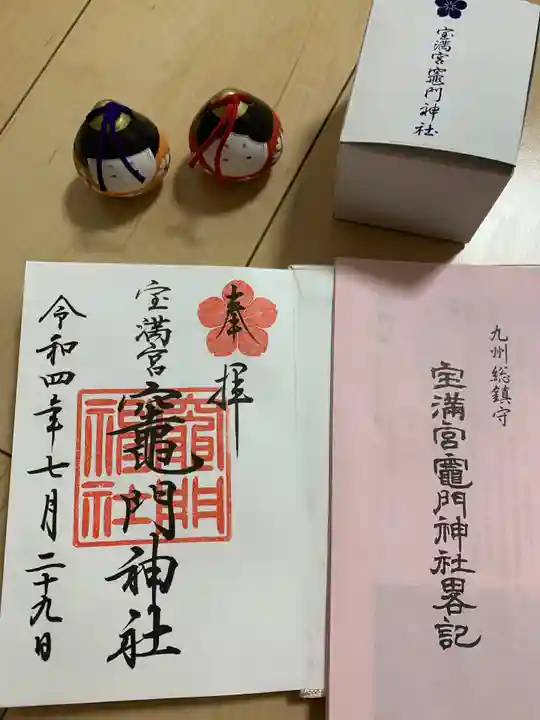 宝満宮竈門神社
奉拝
宝満宮
竈門神社
竈門
神社
令和四年七月二十九日
九州総鎮守
宝満宮竈門神社畧記